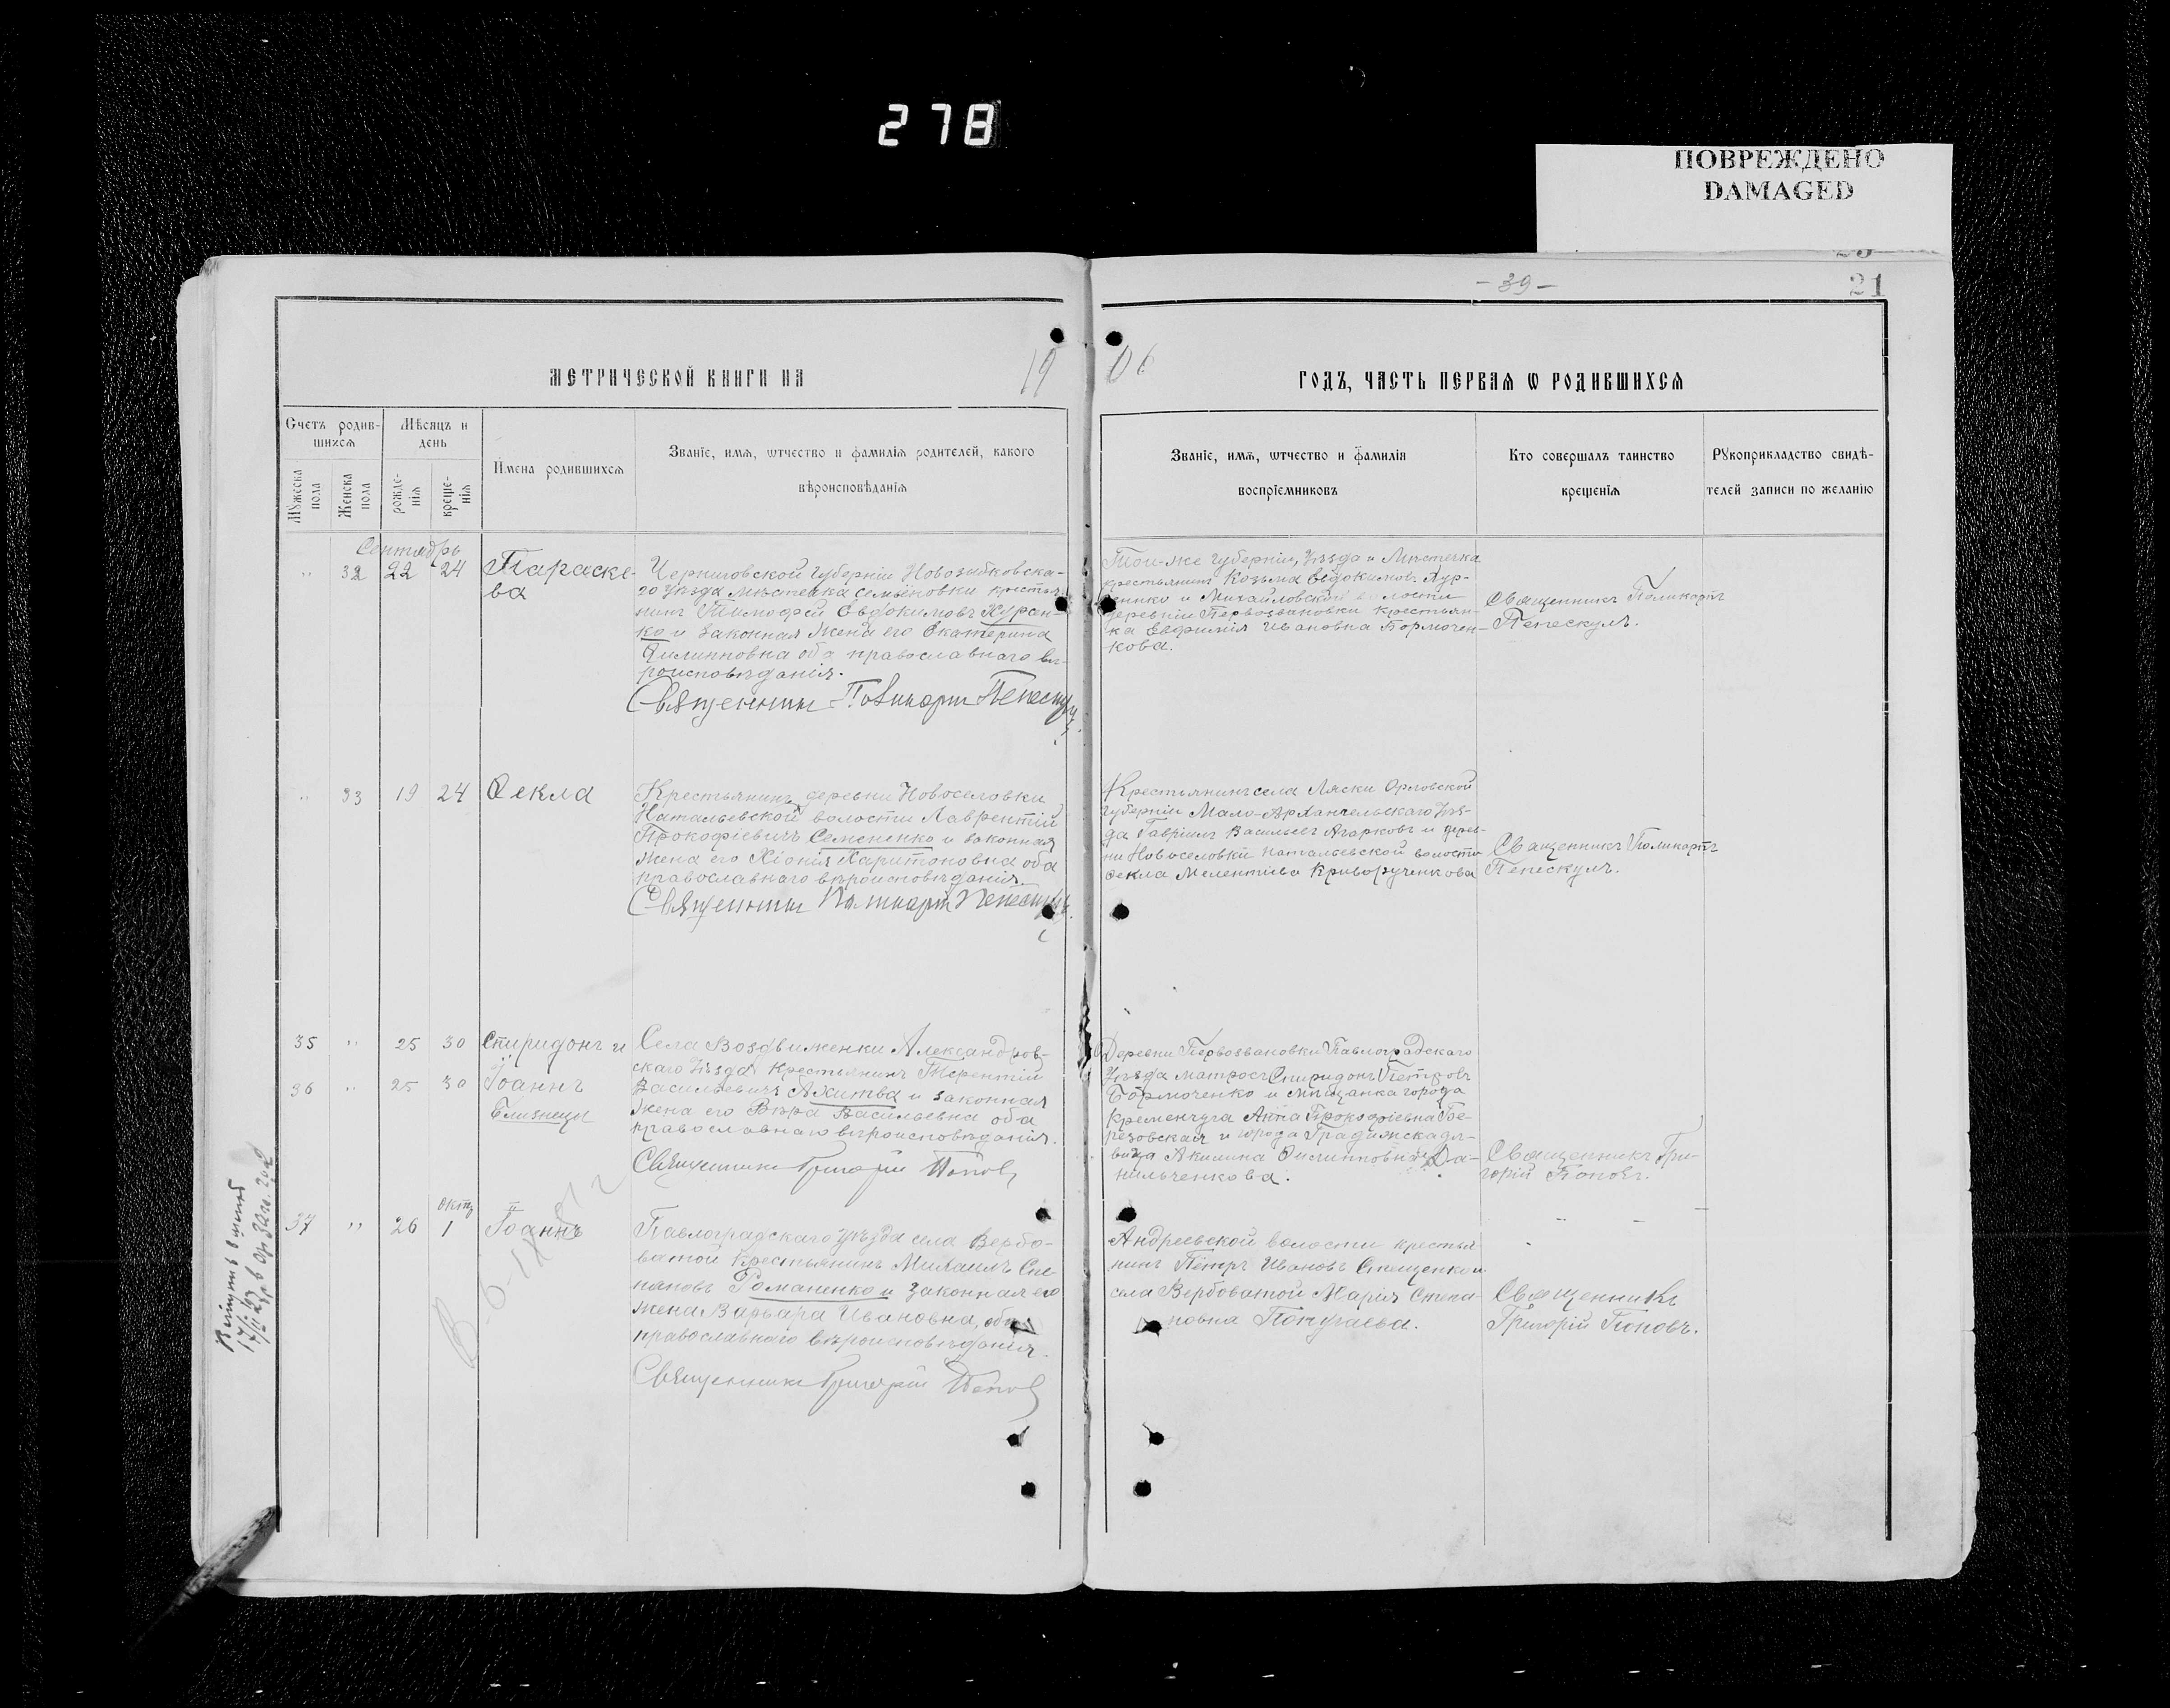 278
ПОВРЕЖДЕНО
DAMAGED
- 39 -
21
МЕТРИЧЕСКОЙ КНИГИ НА 19
06 ГОДЪ, ЧАСТЬ ПЕРВАЯ Ѡ РОДИВШИХСЯ
Счетъ родив-
шихся
Мѣсяцъ и
день
Мꙋжеска
пола
Женска
пола
рожде-
нія
креще-
нія
Имена родившихся
Званіе, имя, ѿтчество и фамилія родителей, какого
вѣроисповѣданія
Званіе, имя, ѿтчество и фамилія
воспріемниковъ
Кто совершалъ таинство
крещенія
Рꙋкоприкладство свидѣ-
телей записи по желанію
Сентябрь
" 32 22 24
Параске-
ва
Черниговской губерніи Новозыбковска-
го уѣзда мѣстечка Семёновки крестья-
нинъ Тимофей Евдокимовъ Журен-
ко и законная жена его Екатерина
Филипповна оба православнаго вѣ-
роисповѣданія.
Священникъ Поликарпъ Пепескулъ
Той-же губерніи, уѣзда и мѣстечка
крестьянинъ Козьма Евдокимовъ
и Михайловской волости
деревніи Первозвановки крестьян-
ка Евфимія Ивановна Бормочен-
кова.
Священникъ Поликарпъ
Пепескулъ.
" 33 19 24
Ѳекла
Крестьянинъ деревни Новоселовки
Натальевской волости Лаврентій
Прокофіевичъ Семененко и законная
жена его Хіонія Харитоновна оба
православнаго вѣроисповѣданія
Священникъ Поликарпъ Пепескулъ.
Крестьянинъ села Ляски Орловской
губерніи Мало-Архангельскаго уѣз-
да Гавріилъ Васильевъ Агарковъ и дерев-
ни Новоселовки Натальевской волости
Ѳекла Мелентіева Криворученкова
Священникъ Поликарпъ
Пепескулъ.
35 " 25 30
Спиридонъ и
36 " 25 30
Іоаннъ
Близнецы
Села Воздвиженки Александров-
скаго уѣзда крестьянинъ Терентій
Васильевичъ Ахитва и законная
жена его Вѣра Васильевна оба
православнаго вѣроисповѣданія.
Священникъ Григорій Поповъ
Деревни Первозвановки Павлоградскаго
уѣзда матросъ Спиридонъ Петровъ
Бормоченко и мѣщанка города
Кременчуга Анна Прокофіевна Бе-
резовская и города Градижска дѣ-
вица Акилина Филипповна Да-
нильченкова.
Священникъ Гри-
горій Поповъ.
Октяб
37 " 26 1
Іоаннъ
Павлоградскаго уѣзда села Вербо-
ватой крестьянинъ Михаилъ Сте-
пановъ Романенко и законная его
жена Варвара Ивановна, оба
православнаго вѣроисповѣданія.
Священникъ Григорій Поповъ
Андреевской волости крестья-
нинъ Петръ Ивановъ Стеценко и
села Вербоватой Марія Степа-
новна Попугаева.
Священникъ
Григорій Поповъ.